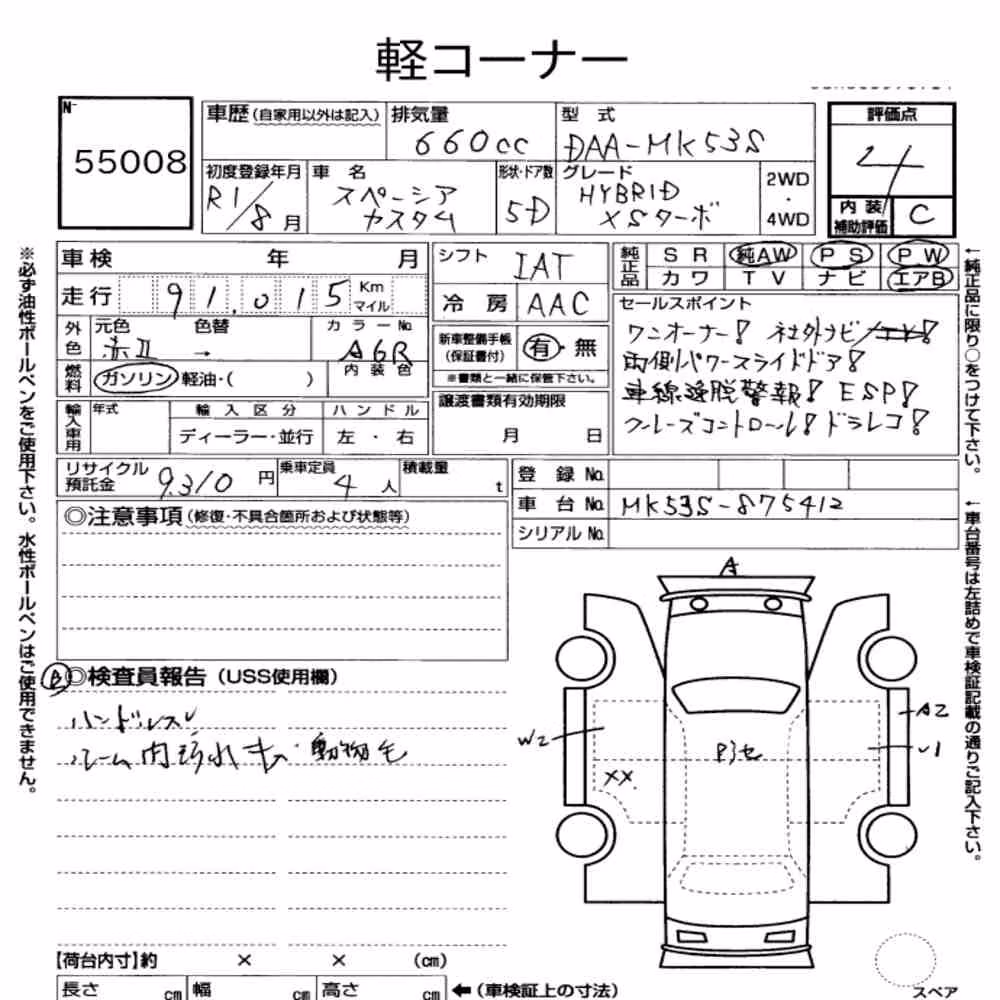 軽コーナー
No
55008
車歴(自家用以外は記入)
排気量
660cc
型式
DAA-MK53S
評価点
4
内装補助評価
C
初度登録年月
R1/8月
車名
スペーシア
カスタム
形状・ドア数
5D
グレード
HYBRID
XSターボ
2WD
・
4WD
車検 年 月
走行 91,015 Km マイル
外色
元色 色替 カラーNo.
赤II → A6R
内装色
燃料
ガソリン・軽油・( )
輸入車用
年式
輸入区分
ハンドル
ディーラー・並行
左・右
シフト
IAT
冷房
AAC
新車整備手帳(保証書付)
有・無
※書類と一緒に保管下さい。
譲渡書類有効期限
月 日
純正品
SR 純AW PS PW
カワ TV ナビ エアB
セールスポイント
ワンオーナー! 社外ナビ/
両側パワースライドドア!
車線逸脱警報! ESP!
クルーズコントロール! ドラレコ!
リサイクル預託金
9310円
乗車定員
4人
積載量
t
登録No.
車台No.
MK53S-875412
シリアルNo.
◎注意事項(修復・不具合箇所および状態等)
B
◎検査員報告(USS使用欄)
ハンドルスレ
ルーム内汚れキズ 動物毛
A
W2
XX
A2
U1
【荷台内寸】約 × × (cm)
長さ cm 幅 cm 高さ cm
←(車検証上の寸法)
スペア
※必ず油性ボールペンをご使用下さい。水性ボールペンはご使用できません。
←純正品に限り○をつけて下さい。
←車台番号は左詰めで車検証記載の通りご記入下さい。